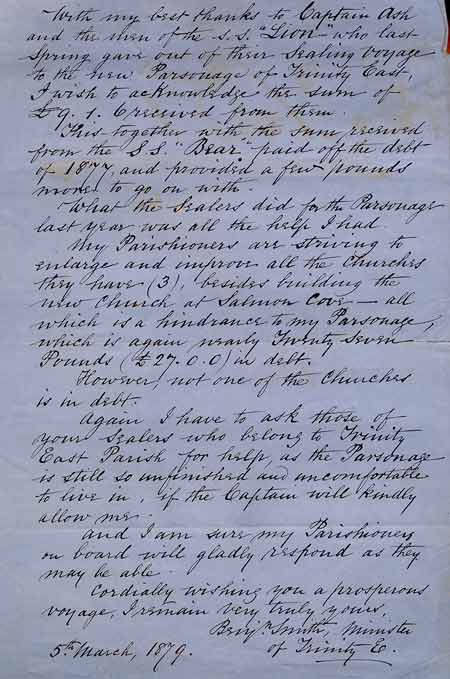 With my best thanks to Captain Ash
and the men of the S.S. "Lion" who last
Spring gave out of their Sealing Voyage
to the new Parsonage of Trinity East,
I wish to acknowledge the sum of
£9. 1. 6 received from them.
This together with the sum received
from the S.S. "Bear" paid off the debt
of 1877, and provided a few pounds
more to go on with.
What the Sealers did for the Parsonage
last year was all the help I had.
My Parishioners are striving to
enlarge and improve all the Churches
they have (3), besides building the
new Church at Salmon Cove — all
which is a hindrance to my Parsonage,
which is again nearly Twenty Seven
Pounds (£27.0.0) in debt.
However, not one of the Churches
is in debt.
Again I have to ask those of
your Sealers who belong to Trinity
East Parish for help, as the Parsonage
is still so unfinished and uncomfortable
to live in, if the Captain will kindly
allow me.
And I am sure my Parishioners
on board will gladly respond as they
may be able.
Cordially wishing you a prosperous
voyage, I remain very truly yours,
Benjn. Smith, Minister
5th March, 1879. of Trinity E.